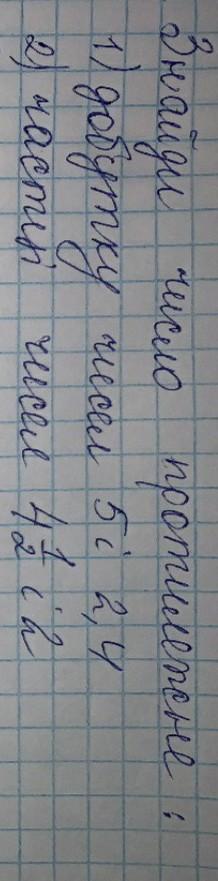 Знайди число протилежне:
1) добутку чисел 5 і 2,4
2) частці чисел 4 1/2 і 2